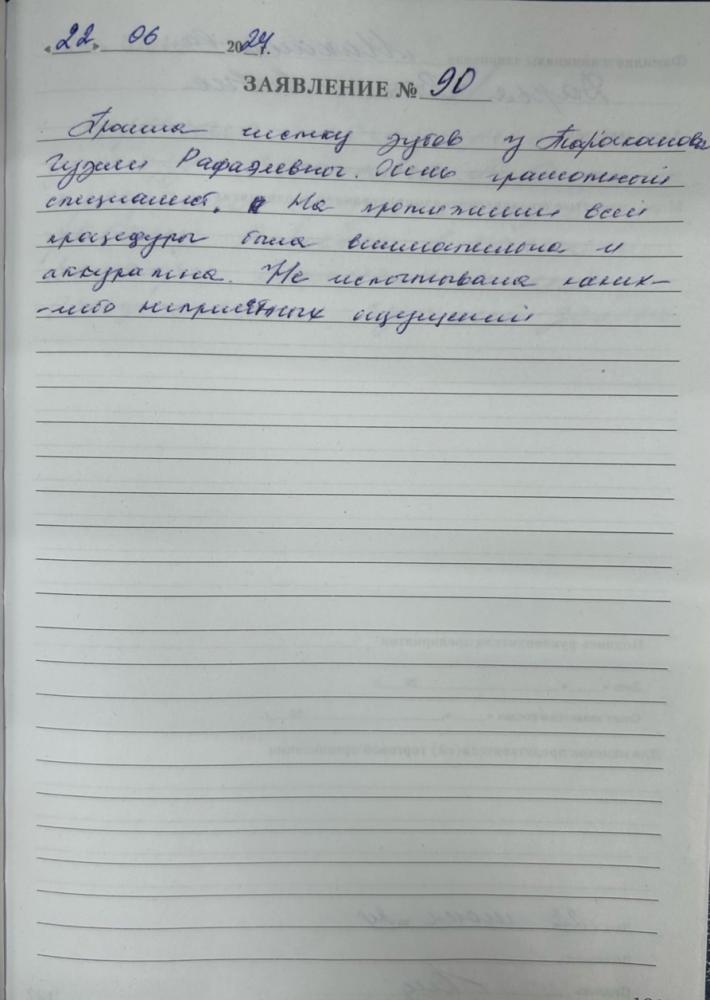 «22» 06 2024.
ЗАЯВЛЕНИЕ № 90
Прошла чистку зубов у Таракановой
Гузели Рафаэлевной. Очень грамотной
специалист. На протяжении всей
процедуры была внимательна и
аккуратна. Не испытывала каких-
-либо неприятных ощущений